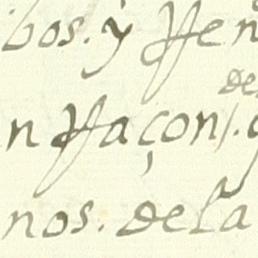 bos. y ffen
de
n ffaçon/.
nos. dela